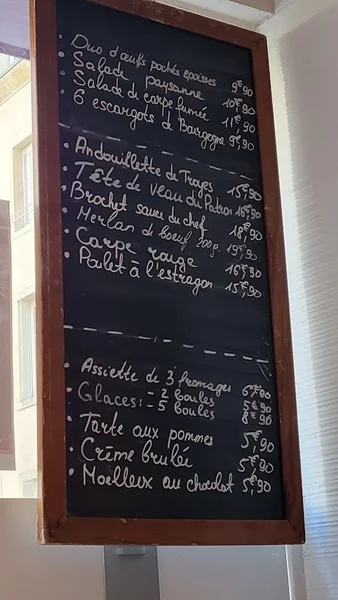 • Duo d'œufs pochés époisses 9€90
• Salade paysanne 10€,90
• Salade de carpe fumée 11€,90
• 6 escargots de Bourgogne 9€,90
• Andouillette de Troyes 15€,90
• Tête de veau du Patron 16€,90
• Brochet sauce du chef 18€,90
• Merlan de boeuf 200g. 19€,90
• Carpe rouge 16€,90
• Poulet à l'estragon 15€,90
• Assiette de 3 fromages 6€,90
• Glaces: - 2 boules 5€90
- 5 boules 8€90
• Tarte aux pommes 5€,90
• Crème brulée 5€,90
• Moelleux au chocolat 5€,90